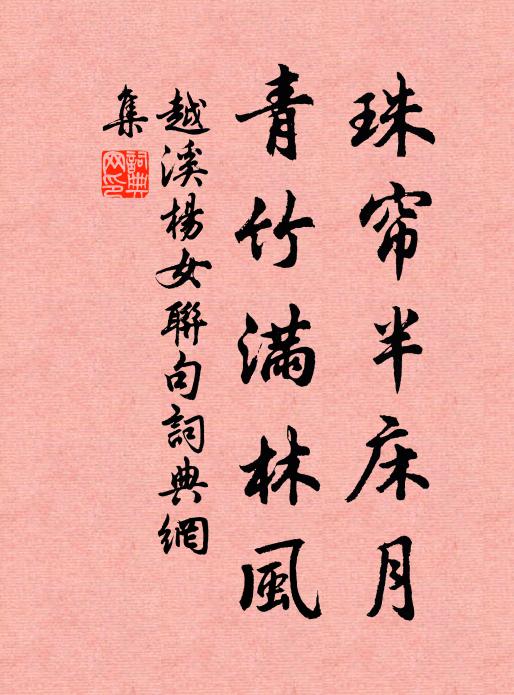 珠帘半床月
青竹满林風
越溪楊女聯句詞典網
集
詞典网印